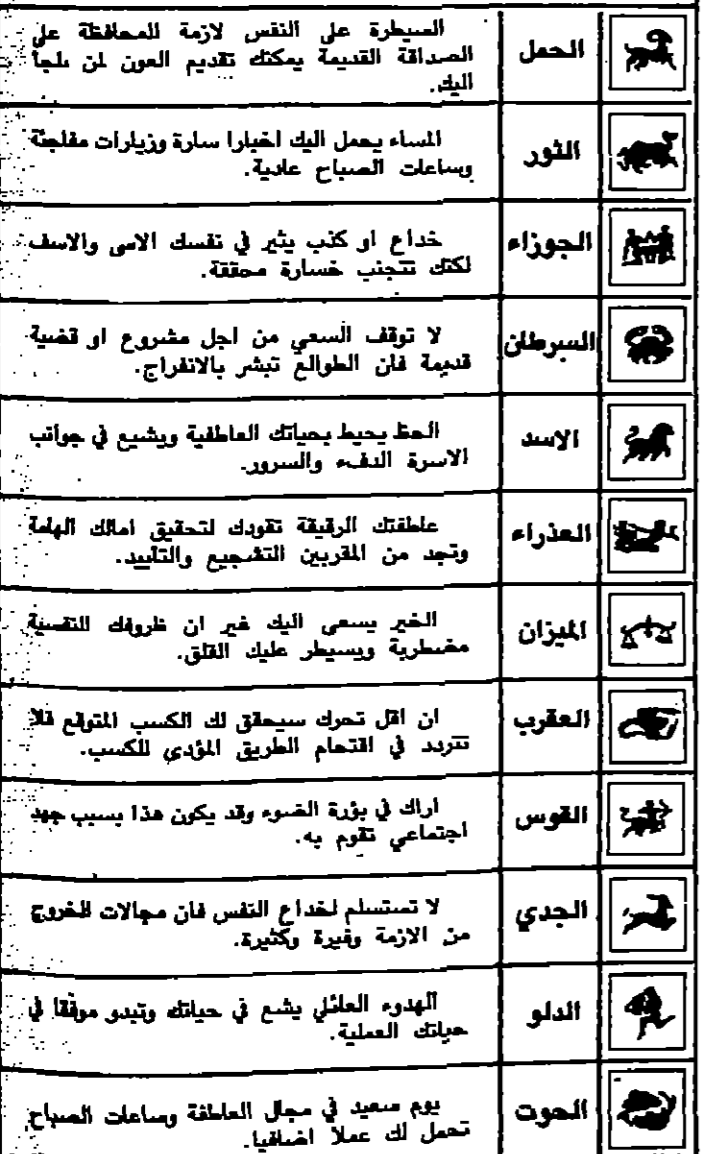 الحمل
السيطرة على النفس لازمة للمحافظة على
الصداقة القديمة يمكنك تقديم العون لمن يلجأ
اليك.
الثور
المساء يحمل اليك اخبارا سارة وزيارات مفاجئة
وساعات الصباح عادية.
الجوزاء
خداع او كذب يثير في نفسك الاسى والاسف
لكنك تتجنب خسارة محققة.
السرطان
لا توقف السعي من اجل مشروع او قضية
قديمة فان الطوالع تبشر بالانفراج.
الاسد
الحظ يحيط بحياتك العاطفية ويشيع في جوانب
الاسرة الدفء والسرور.
العذراء
عاطفتك الرقيقة تقودك لتحقيق امالك الهامة
وتجد من المقربين التشجيع والتاييد.
الميزان
الخير يسعى اليك غير ان ظروفك النفسية
مضطربة ويسيطر عليك القلق.
العقرب
ان اقل تحرك سيحقق لك الكسب المتوقع فلا
تتردد في اقتحام الطريق المؤدي للكسب.
القوس
اراك في بؤرة الضوء وقد يكون هذا بسبب جهد
اجتماعي تقوم به.
الجدي
لا تستسلم لخداع النفس فان مجالات الخروج
من الازمة وفيرة وكثيرة.
الدلو
الهدوء العائلي يشع في حياتك وتبدو موفقا في
حياتك العملية.
الحوت
يوم سعيد في مجال العاطفة وساعات الصباح
تحمل لك عملا اضافيا.